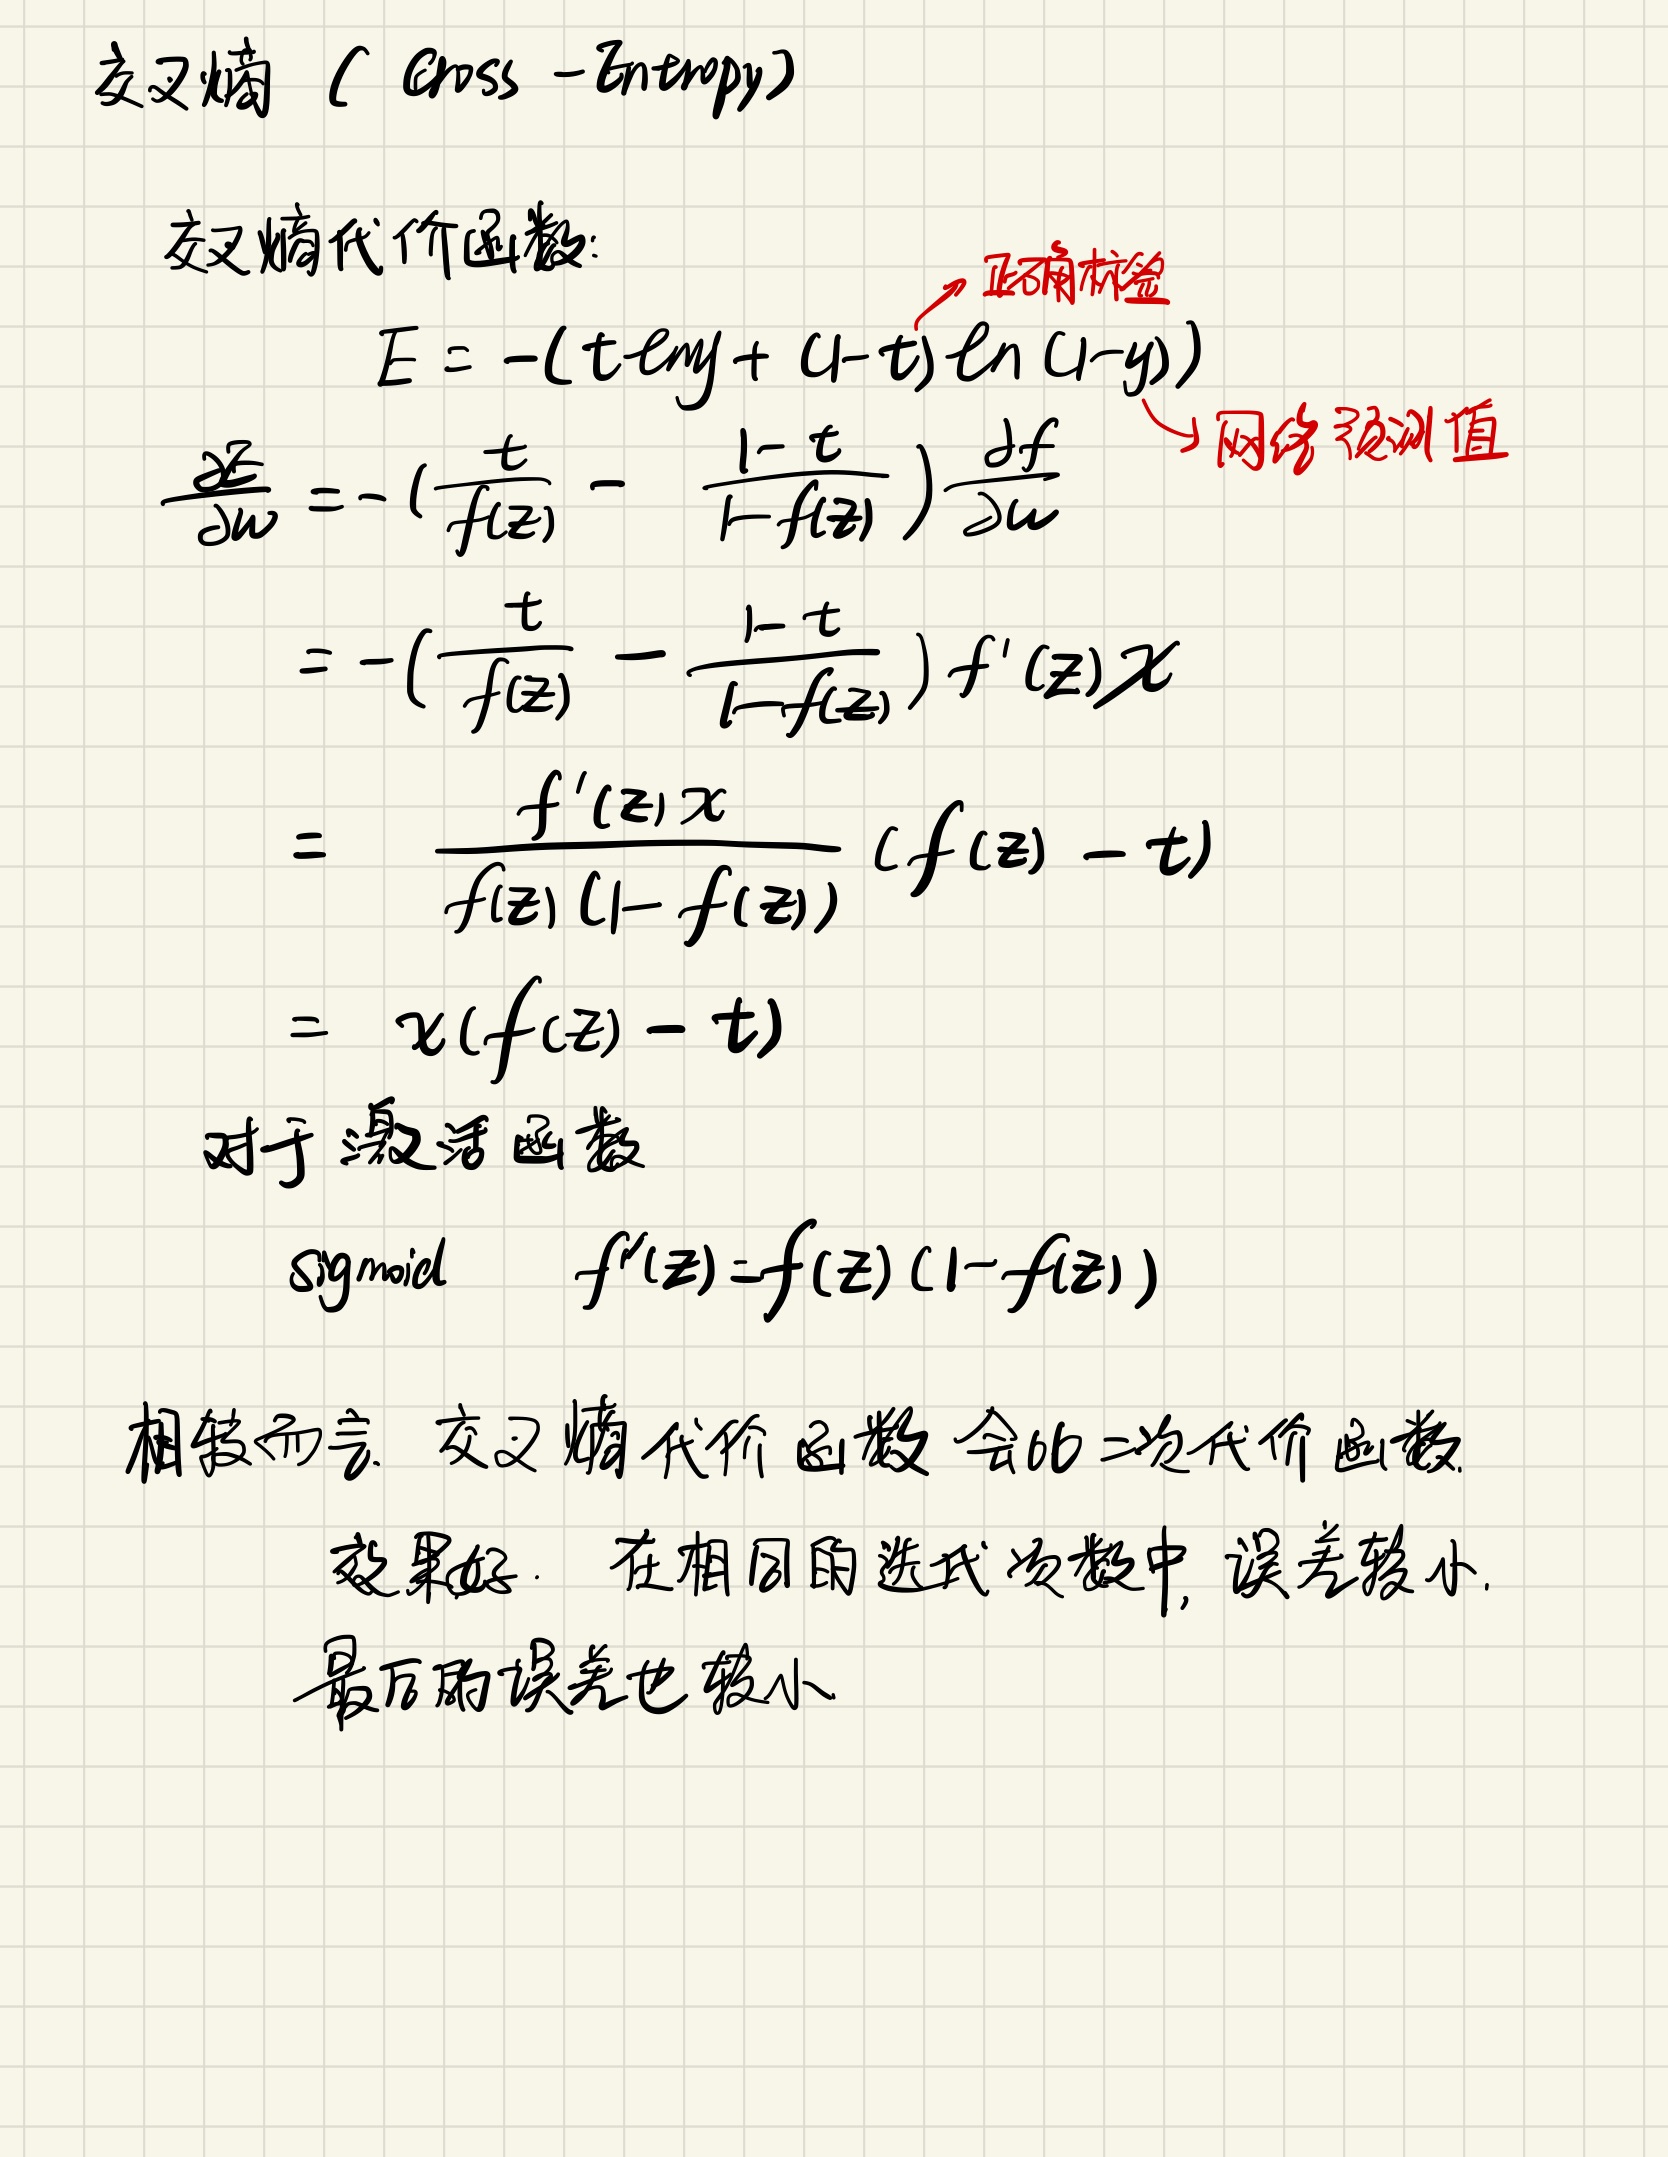 交叉熵 ( Cross - Entropy)
交叉熵代价函数:
正确标签
E = -( t ln y + (1-t) ln (1-y))
网络预测值
∂E/∂w = - ( t/f(z) - (1-t)/(1-f(z)) ) ∂f/∂w
= - ( t/f(z) - (1-t)/(1-f(z)) ) f'(z) x
= f'(z) x / f(z) (1-f(z)) (f(z) - t)
= x(f(z) - t)
对于激活函数
sigmoid f'(z)=f(z) (1-f(z))
相较而言. 交叉熵代价函数会比二次代价函数.
效果好. 在相同的迭代次数中, 误差较小.
最后的误差也较小